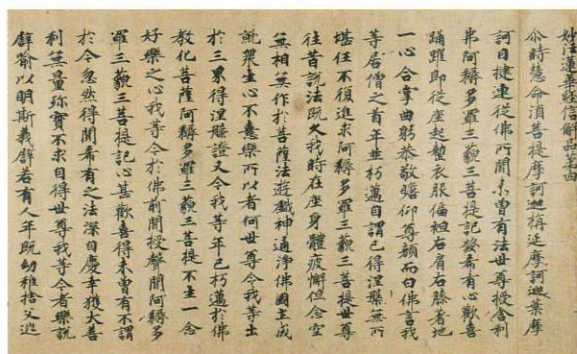 妙法蓮華經信解品第四
尒時慧命湏菩提摩訶迦旃延摩訶迦葉摩
訶目揵連從佛所聞未曾有法世尊授舍利
弗阿耨多羅三藐三菩提記發希有心歡喜
踊躍即從座起整衣服偏袒右肩右膝著地
一心合掌曲躬恭敬瞻仰尊顔而白佛言我
等居僧之首年並朽邁自謂已得涅槃無所
堪任不復進求阿耨多羅三藐三菩提世尊
往昔說法既久我時在座身體疲懈但念空
無相無作於菩薩法遊戲神通淨佛國土成
就衆生心不喜樂所以者何世尊令我等出
於三界得涅槃證又今我等年已朽邁於佛
教化菩薩阿耨多羅三藐三菩提不生一念
好樂之心我等今於佛前聞授聲聞阿耨多
羅三藐三菩提記心甚歡喜得未曾有不謂
於今忽然得聞希有之法深自慶幸獲大善
利無量珎寶不求自得世尊我等今者樂說
譬喻以明斯義譬若有人年既幼稚捨父逃